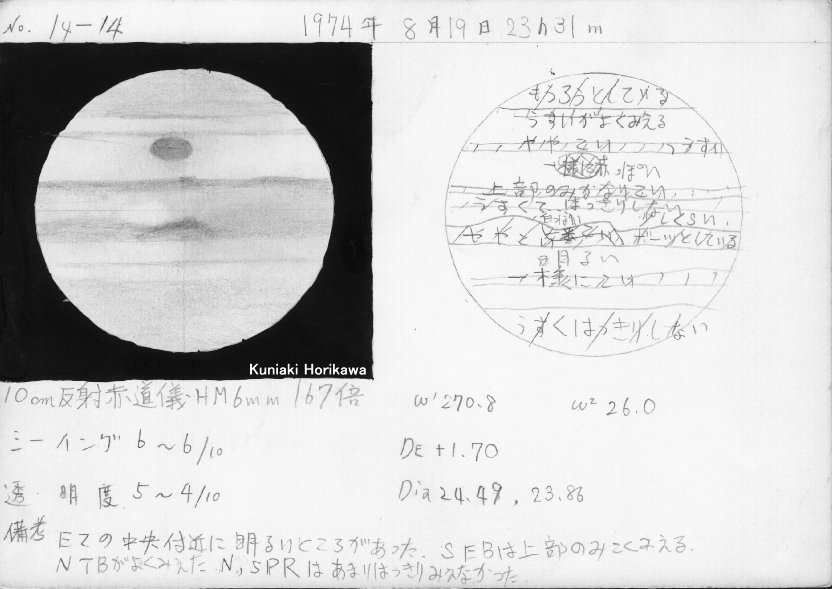 No. 14-14
1974年 8月19日 23h31m
もうろうとしている
うすいがよくみえる
ややこい うすい
一様に赤っぽい
上部のみかなりこい
うすくて はっきりしない
少しくらい
ややこ ボーッとしている
明るい
一様にこい
うすくはっきりしない
Kuniaki Horikawa
10cm反射赤道儀 HM6mm 167倍
ω¹ 270.8 ω² 26.0
シーイング 6~6/10
DE +1.70
透明度 5~4/10
Dia 24.49, 23.86
備考 EZの中央付近に明るいところがあった. SEBは上部のみこくみえる.
NTBがよくみえた. N, SPRはあまりはっきりみえなかった.